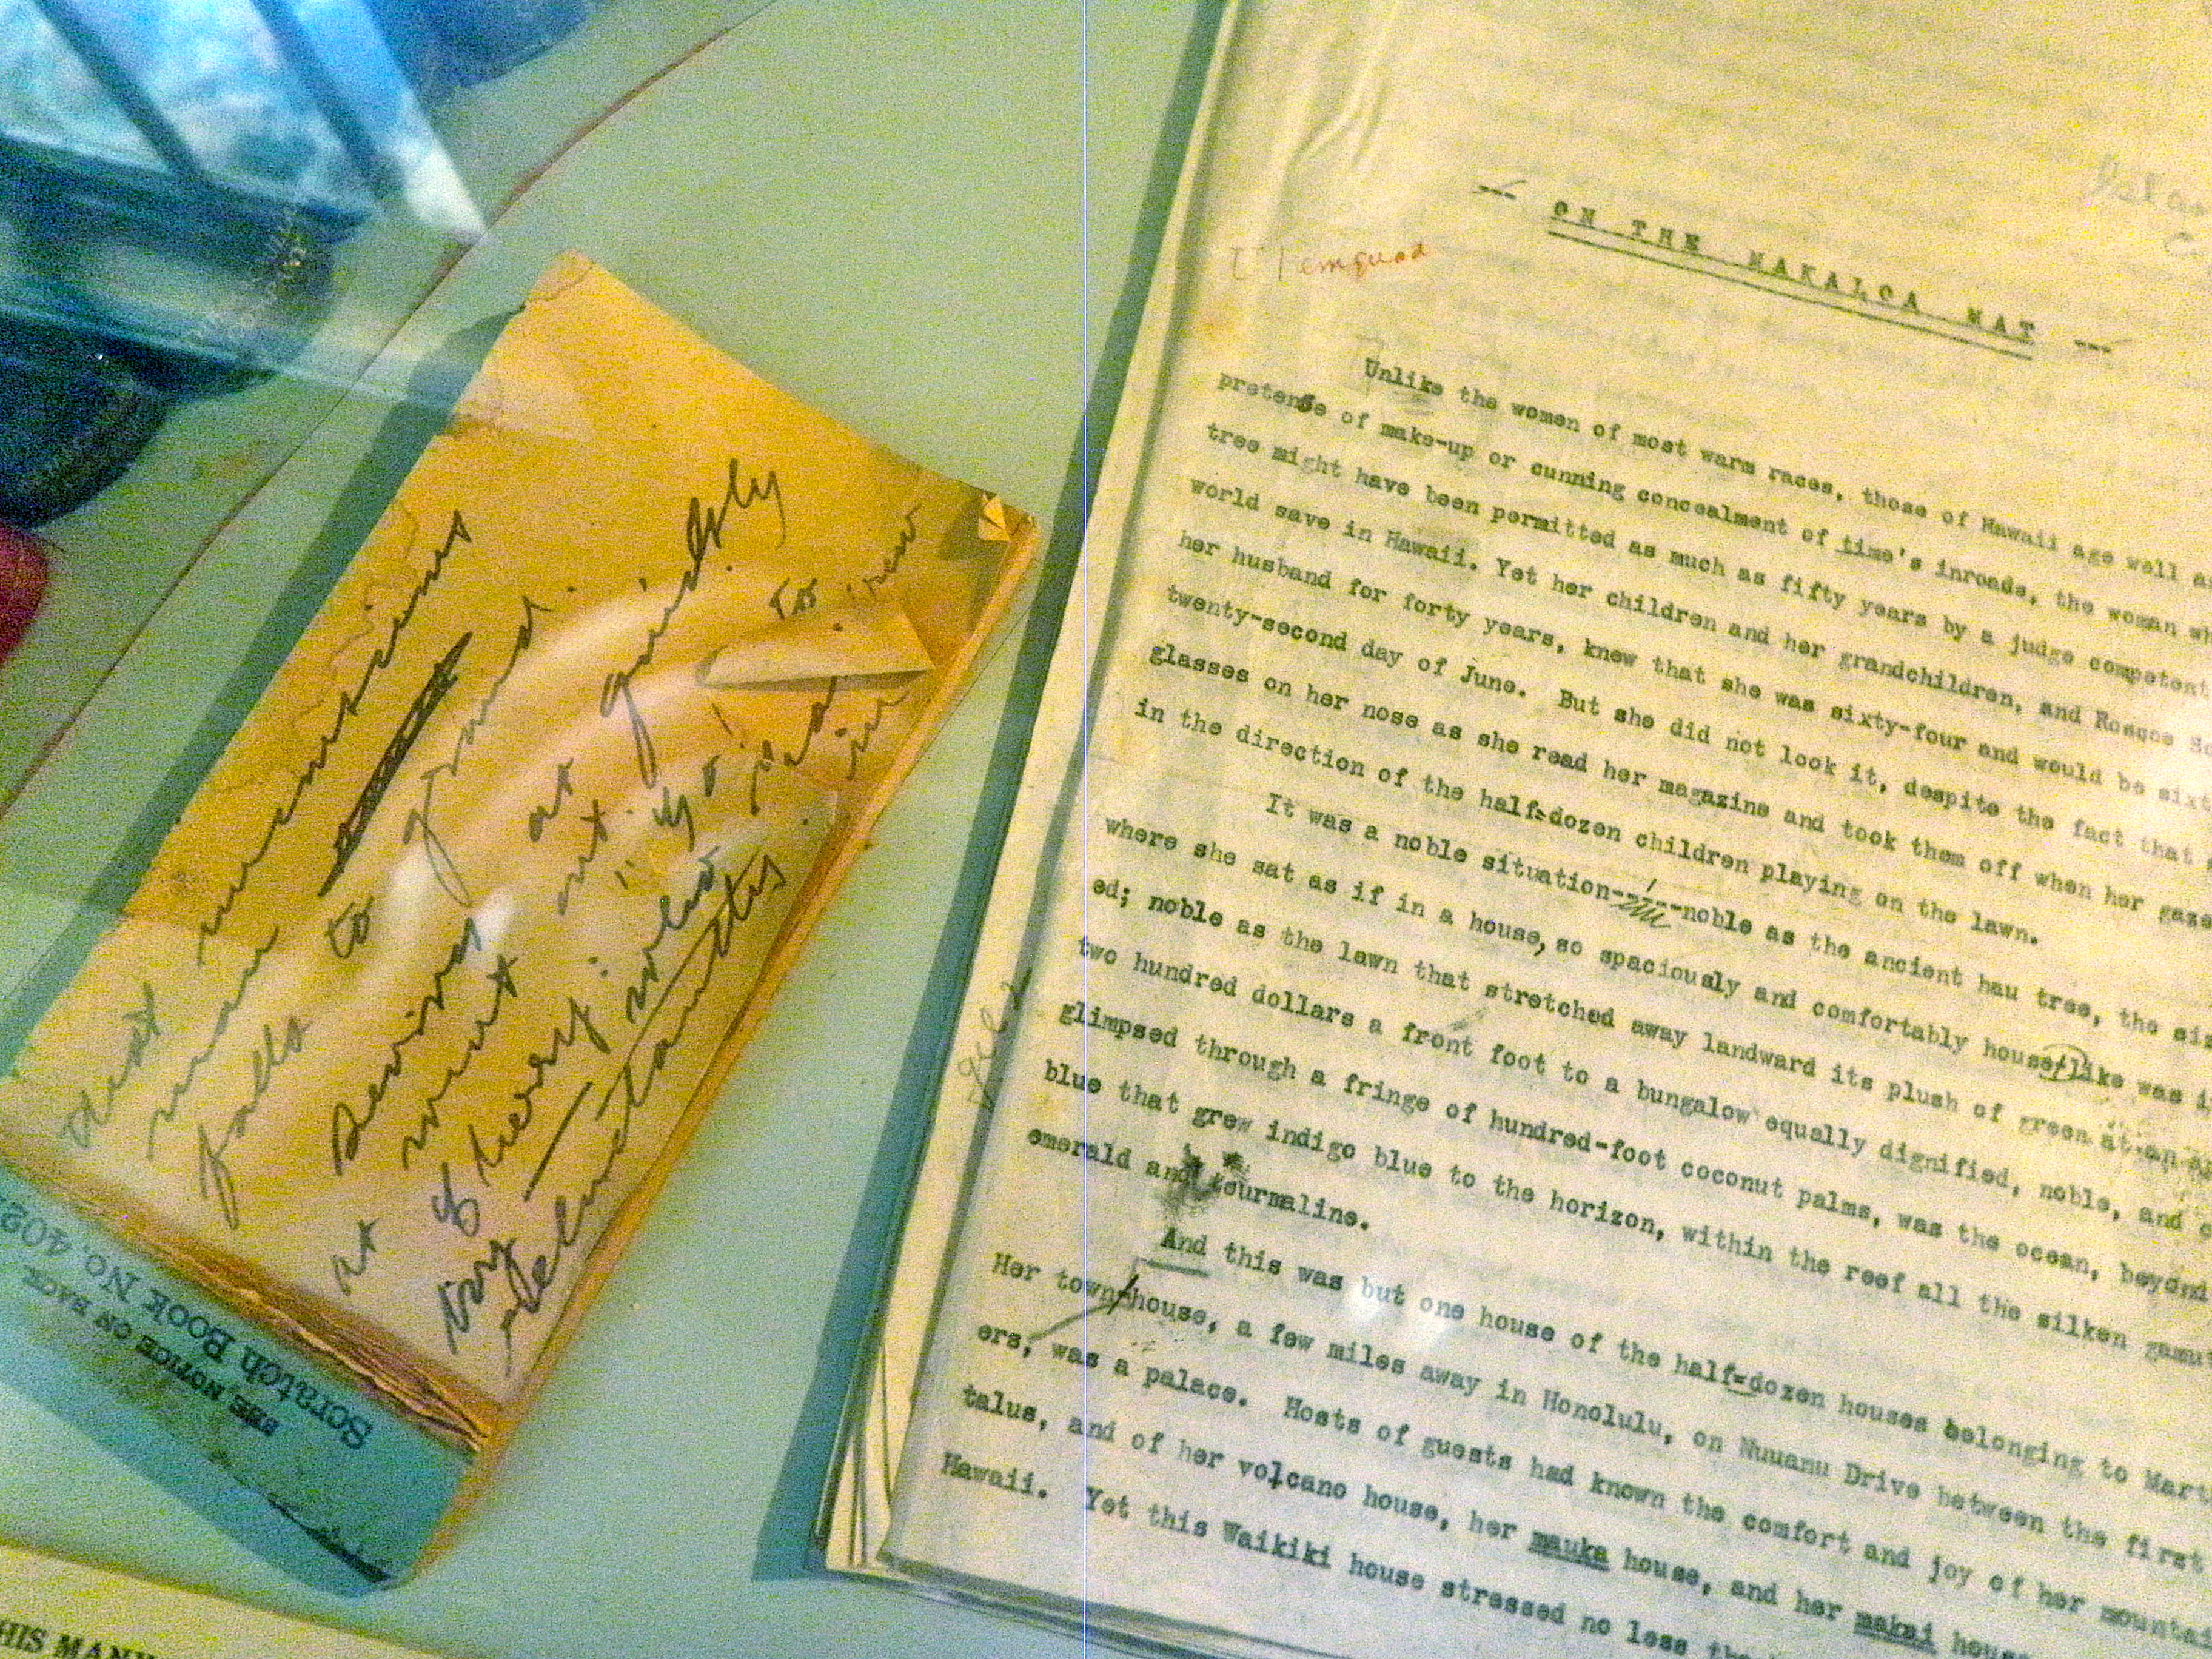 that
man
falls to ground.
Seizes at
must out quickly
at Sherry: "Go!
try
reluctantly.
Scratch Book No. 402
SEE NOTICE ON BACK
HIS MANU
-- ON THE MAKALOA MAT --
Unlike the women of most warm races, those of Hawaii age well a
pretense of make-up or cunning concealment of time's inroads, the woman wh
tree might have been permitted as much as fifty years by a judge competent
world save in Hawaii. Yet her children and her grandchildren, and Roscoe Sc
her husband for forty years, knew that she was sixty-four and would be sixt
twenty-second day of June. But she did not look it, despite the fact that
glasses on her nose as she read her magazine and took them off when her gaze
in the direction of the half-dozen children playing on the lawn.
It was a noble situation---noble as the ancient hau tree, the siz
where she sat as if in a house, so spaciously and comfortably house-like was i
ed; noble as the lawn that stretched away landward its plush of green at an a
two hundred dollars a front foot to a bungalow equally dignified, noble, and c
glimpsed through a fringe of hundred-foot coconut palms, was the ocean, beyond
blue that grew indigo blue to the horizon, within the reef all the silken gamut
emerald and tourmaline.
And this was but one house of the half-dozen houses belonging to Mart
Her town-house, a few miles away in Honolulu, on Nuuanu Drive between the first
ers, was a palace. Hosts of guests had known the comfort and joy of her mountai
talus, and of her volcano house, her mauka house, and her makai hous
Hawaii. Yet this Waikiki house stressed no less tha